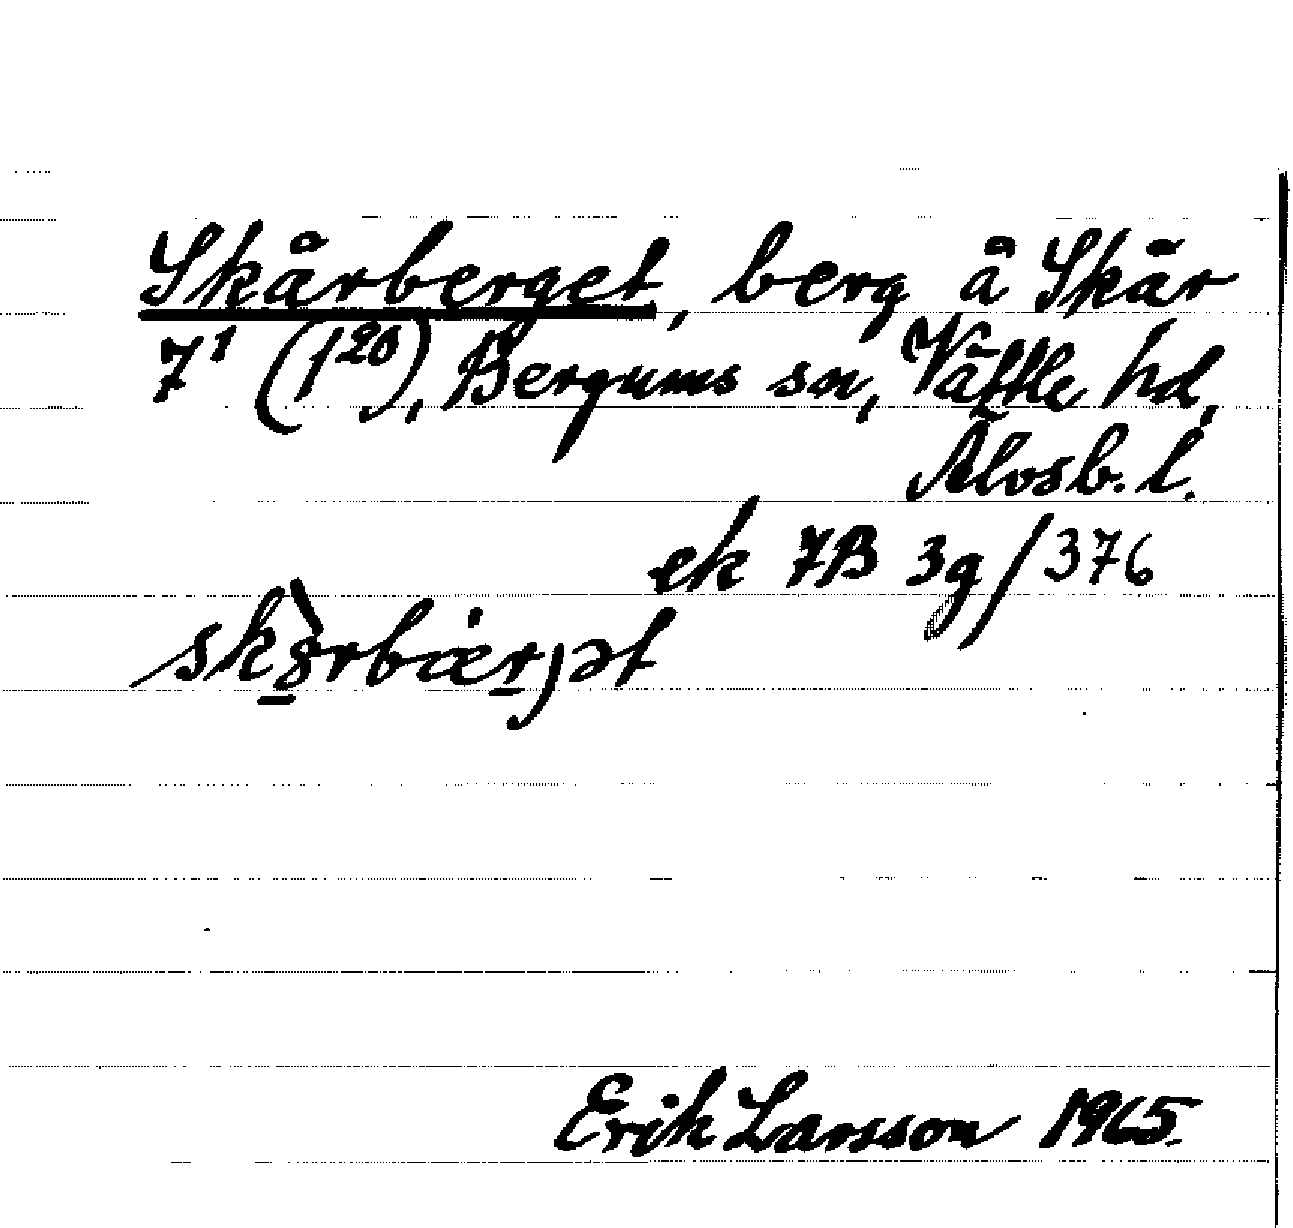 Skårberget, berg å Skår
7¹ (1²⁰), Bergums sn, Vättle hd,
Älvsb. l.
ek 7B 3g/376
Erik Larsson 1965.